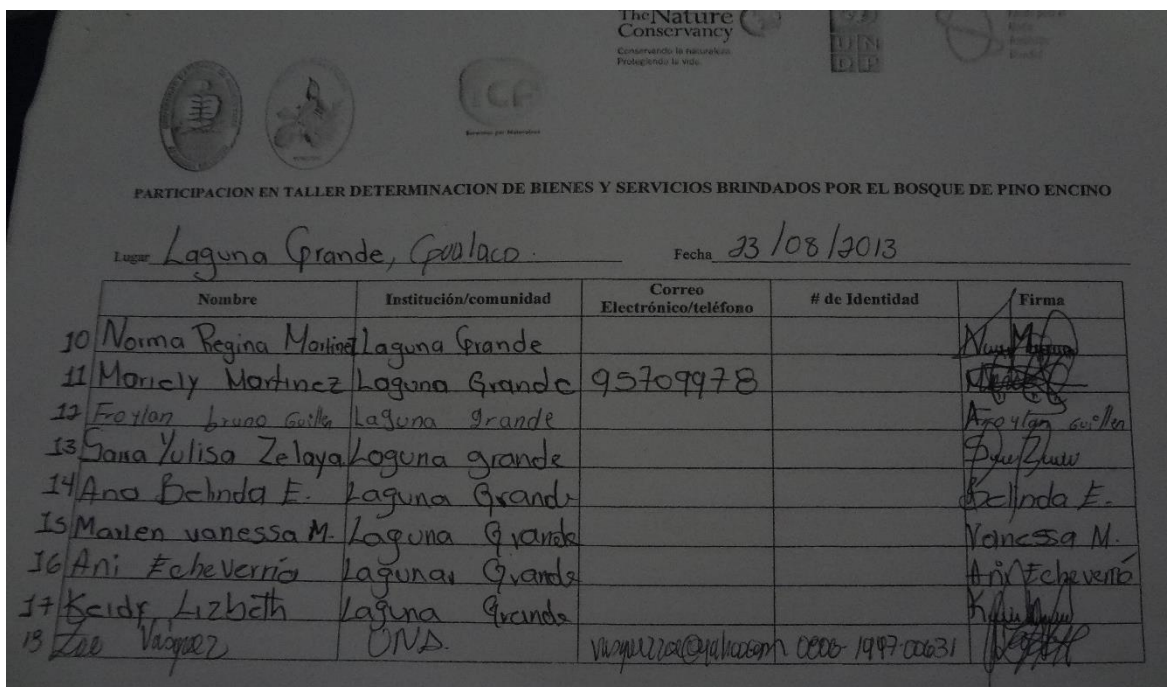 The Nature
Conservancy
Conservando la naturaleza.
Protegiendo la vida.
UN
DP
ICF
PARTICIPACION EN TALLER DETERMINACION DE BIENES Y SERVICIOS BRINDADOS POR EL BOSQUE DE PINO ENCINO
Lugar Laguna Grande, Gualaco. Fecha 23/08/2013
Nombre Institución/comunidad Correo Electrónico/teléfono # de Identidad Firma
10 Norma Regina Martinez Laguna Grande
11 Mariely Martinez Laguna Grande 95709978
12 Froylan bruno Guillen Laguna grande Froylan Guillen
13 Sara Yulisa Zelaya Laguna grande
14 Ana Belinda E. Laguna Grande Belinda E.
15 Marlen vanessa M. Laguna Grande Vanessa M.
16 Ani Echeverría Laguna Grande Ani Echeverría
17 Keidy Lizbeth Laguna Grande
Vasquez